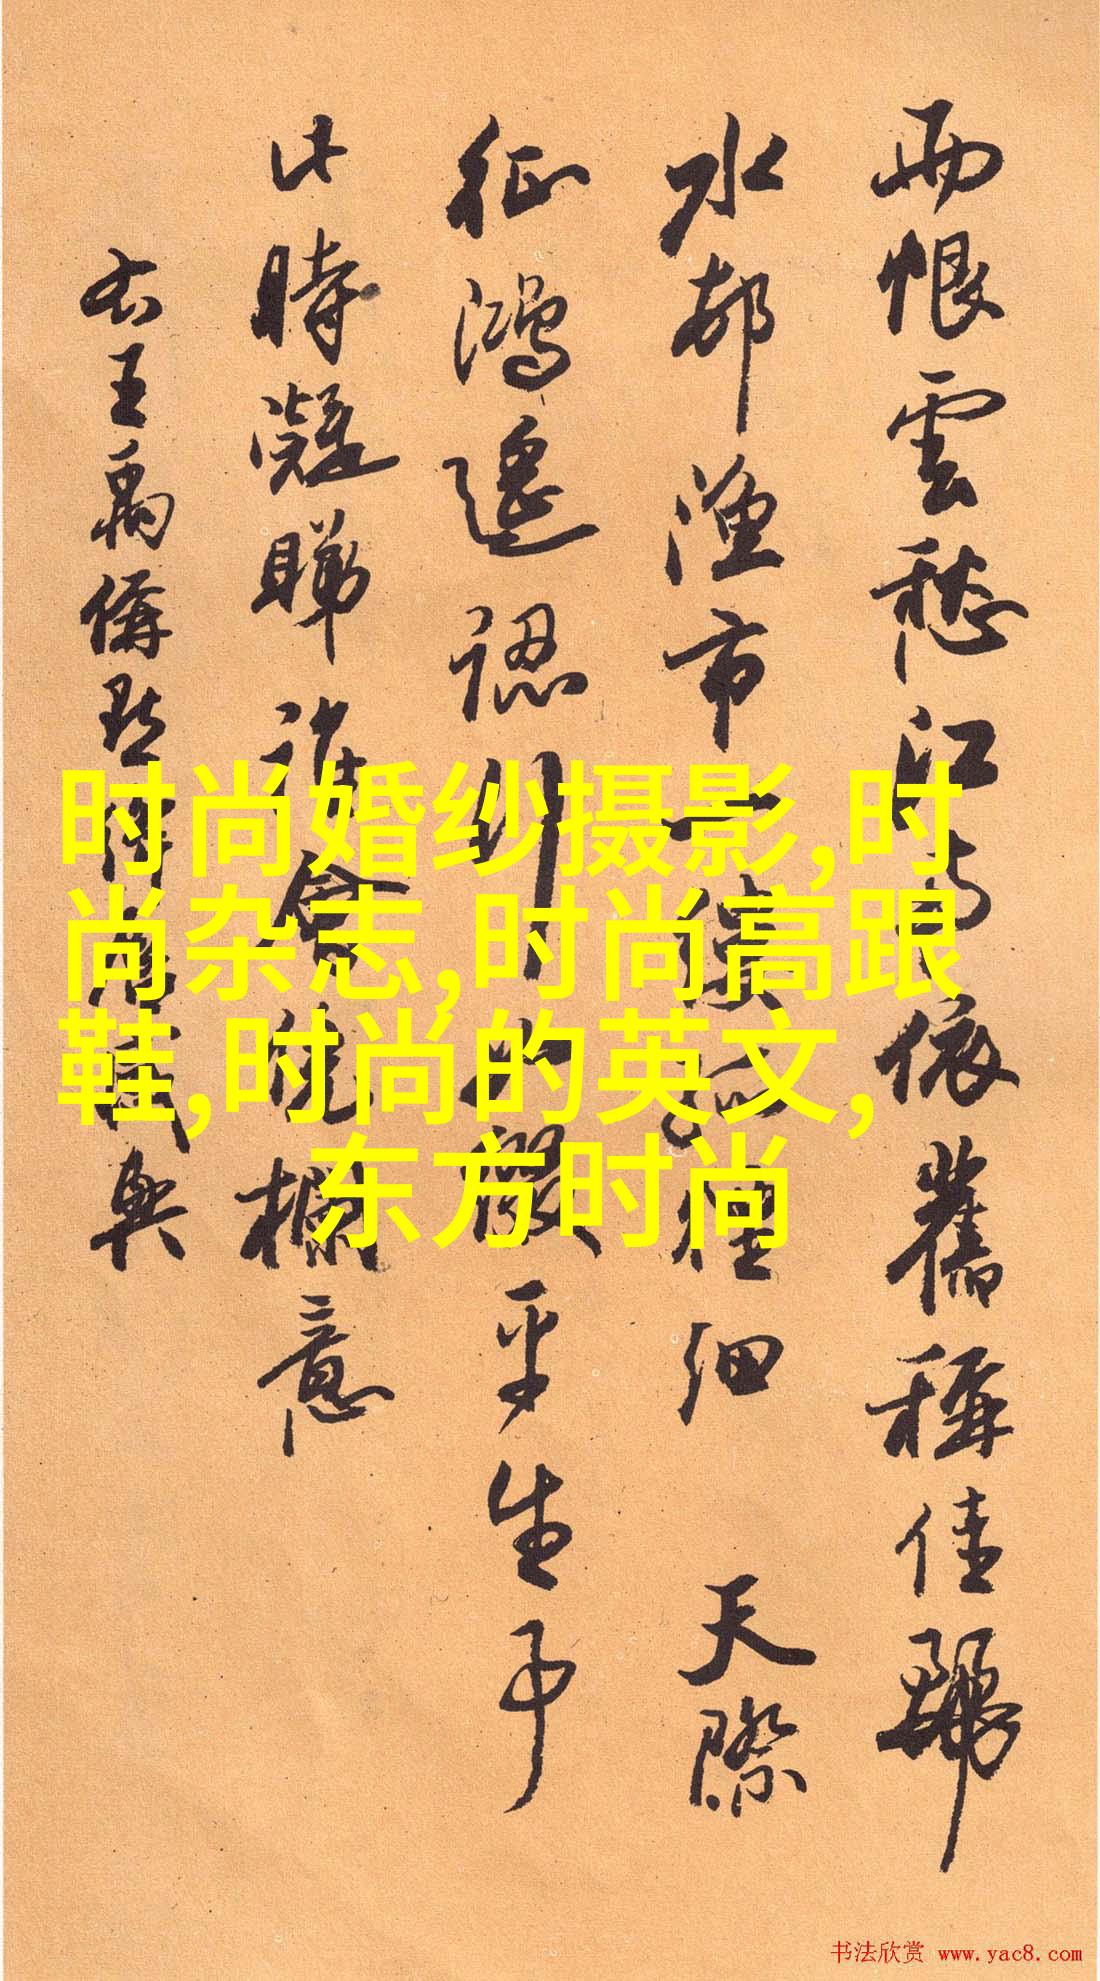 雨恨雲愁江南依舊稱佳麗
水邨漁市一縷孤煙細 天際
征鴻遙認行如綴平生事
此時凝睇誰會凭欄意
右王禹偁點絳唇感興
时尚婚纱摄影,时
尚杂志,时尚高跟
鞋,时尚的英文,
东方时尚
书法欣赏 www.yac8.com